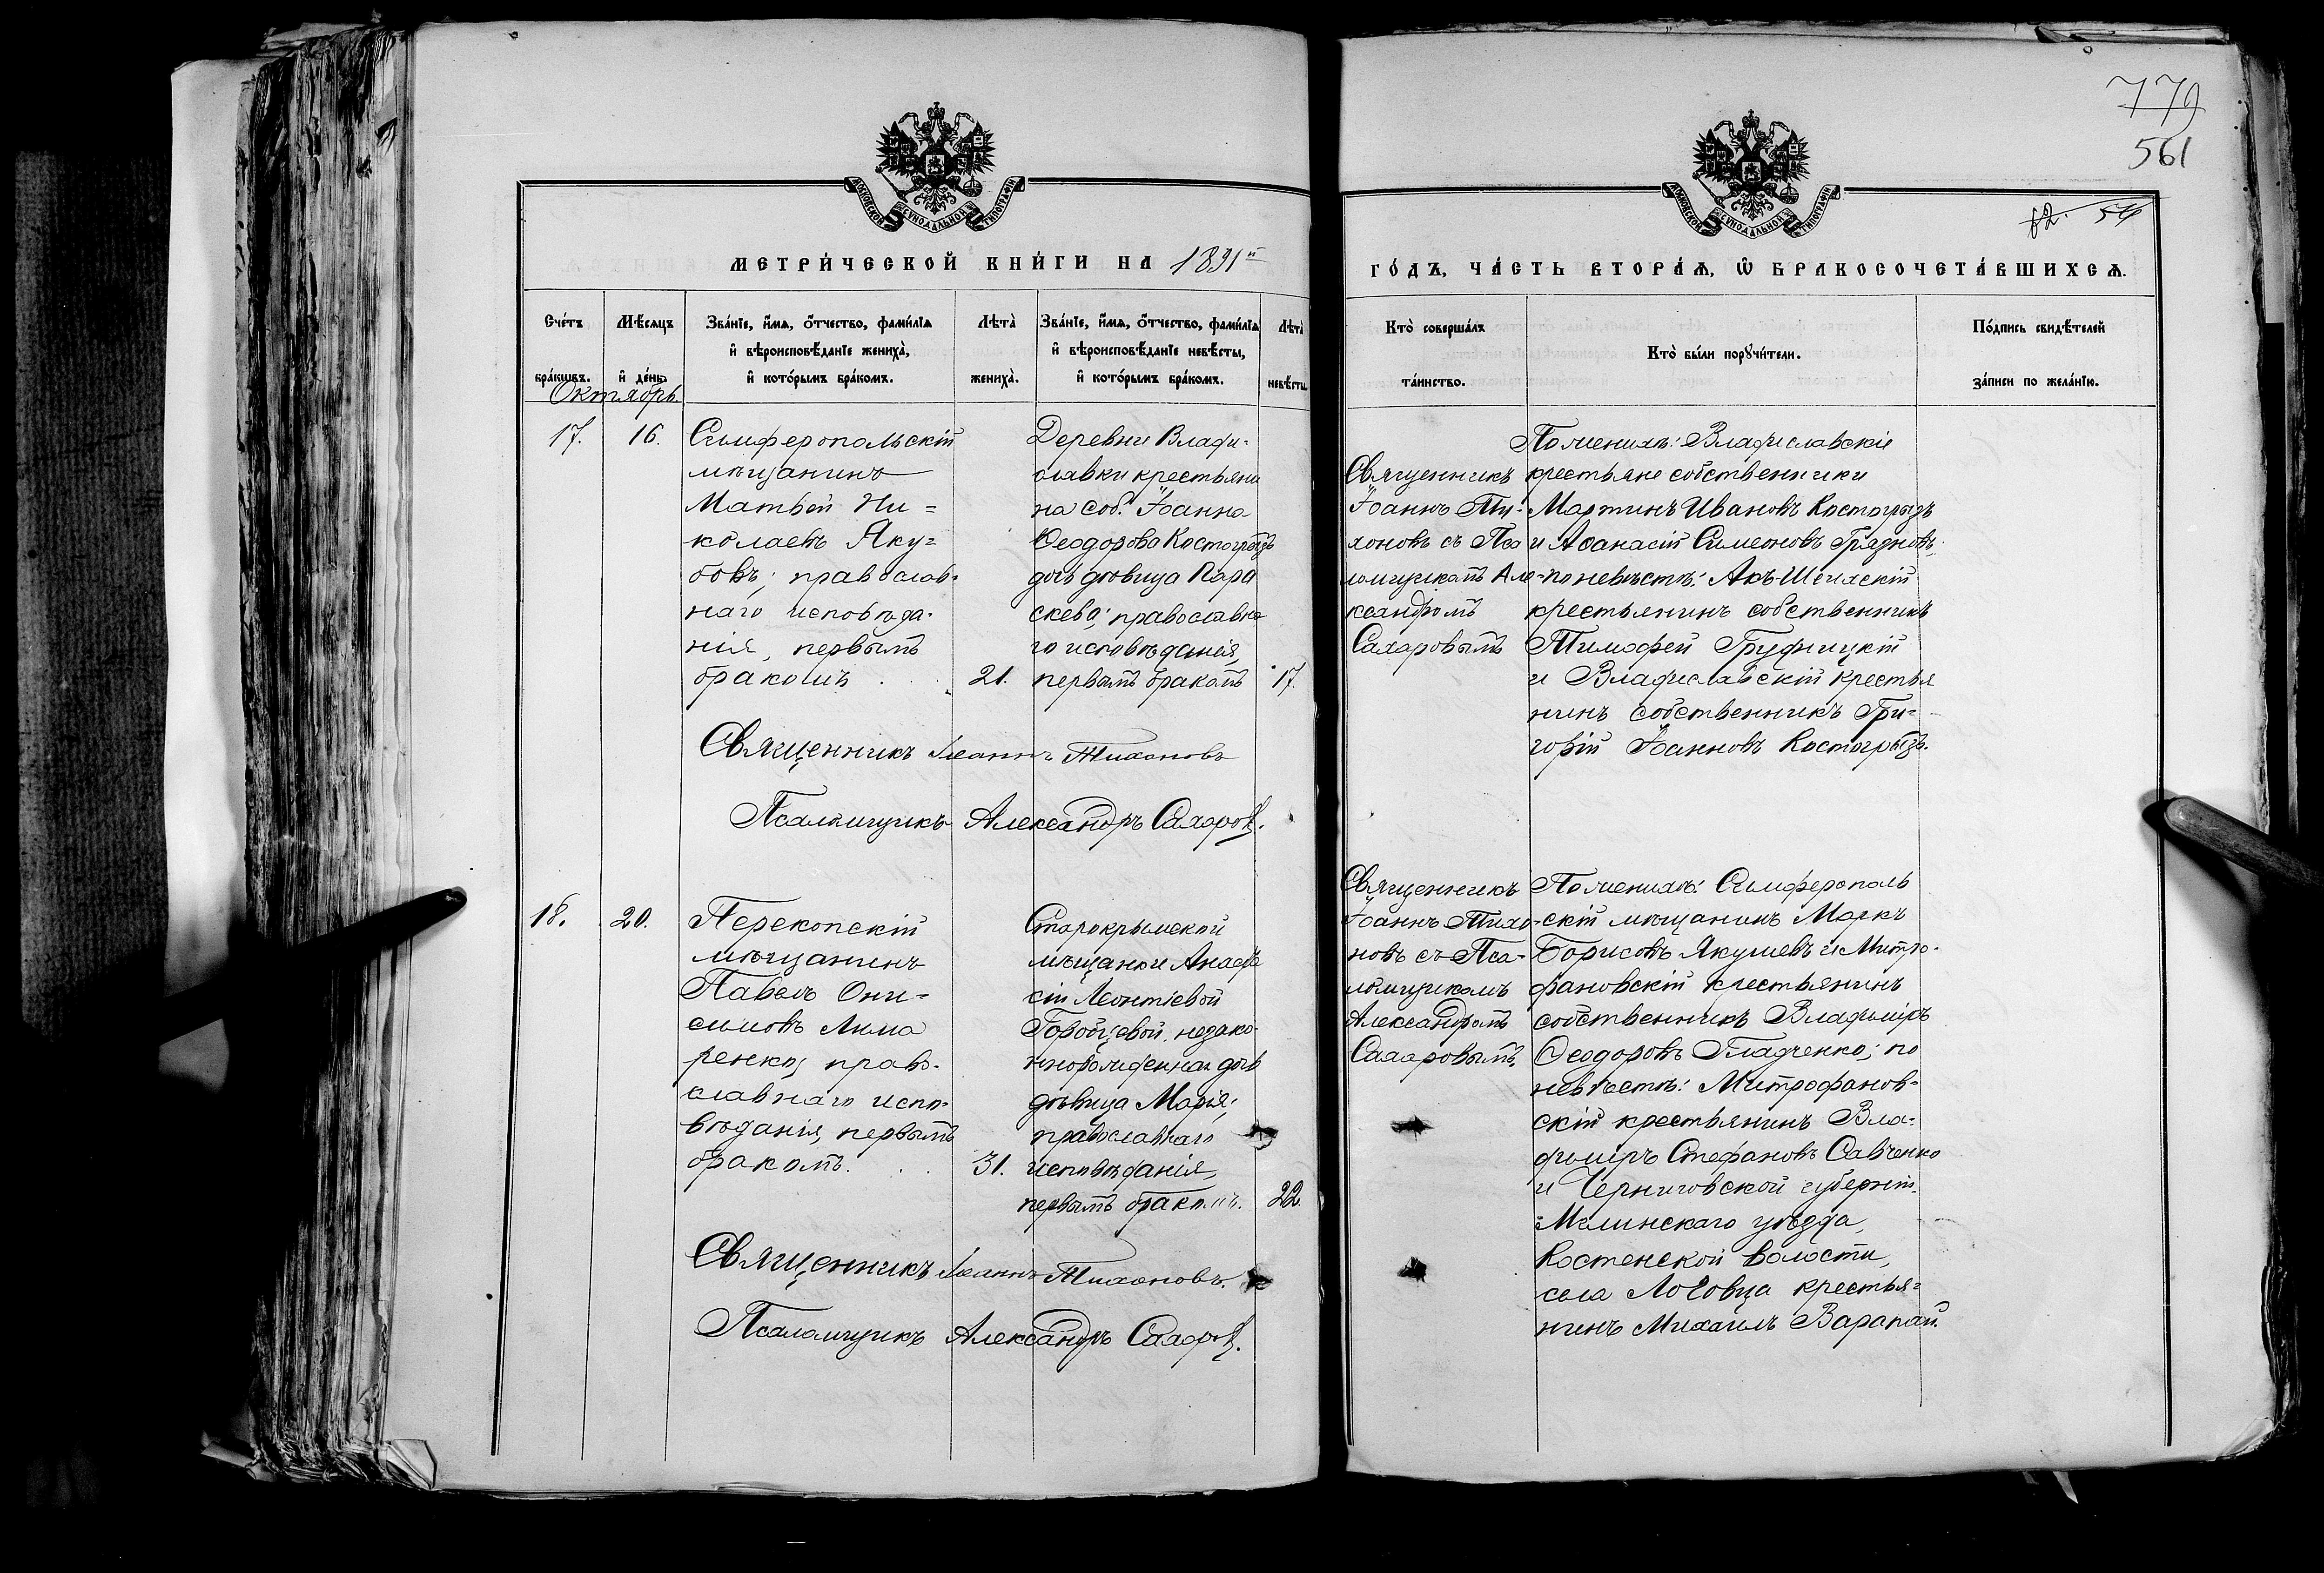 779
561
62. 54
МОСКОВСКОЙ СѴНОДАЛЬНОЙ ТИПОГРАФІИ
МОСКОВСКОЙ СѴНОДАЛЬНОЙ ТИПОГРАФІИ
МЕТРИ́ЧЕСКОЙ КНИ́ГИ НА 1891й
ГО́ДЪ, ЧА́СТЬ ВТОРА́Ѧ, Ѽ БРАКОСОЧЕТА́ВШИХСѦ.
Сче́тъ
бра́кѡвъ.
Мѣ́сяцъ
и҆ де́нь.
Зва́нїе, и҆́мѧ, ѻ҆́тчество, фами́лїѧ
и҆ вѣроисповѣ́данїе жениха̀,
и҆ кото́рымъ бра́комъ.
Лѣта̀
жениха̀.
Зва́нїе, и҆́мѧ, ѻ҆́тчество, фами́лїѧ
и҆ вѣроисповѣ́данїе невѣ́сты,
и҆ кото́рымъ бра́комъ.
Лѣта̀
невѣ́сты.
Кто̀ соверша́лъ
та́инство.
Кто̀ бы́ли порꙋчи́тели.
По́дпись свидѣ́телей
за́писи по жела́нїю.
Октябрь.
17.
16.
Симферопольскій
мѣщанинъ
Матвѣй Ни=
колаевъ Яку=
бовъ; православ-
наго исповѣда-
нія, первымъ
бракомъ
21.
Деревни Влади-
славки крестьяни
на соб. Іоанна
Ѳеодорова Костогрызъ
дочь дѣвица Пара
скева; православна
го исповѣданія,
первымъ бракомъ
17.
Священникъ
Іоаннъ Ти-
хоновъ съ Пса
ломщикомъ Але-
ксандромъ
Сахаровымъ
По женихѣ: Владиславскіе
крестьяне собственники
Мартинъ Ивановъ Костогрызъ
и Аѳанасій Симеоновъ Грядновъ,
по невѣстѣ: Акъ-Шеихскій
крестьянинъ собственникъ
Тимофей Грудницкій
и Владиславскій крестья
нинъ собственникъ Гри=
горій Іоанновъ Костогрызъ.
Священникъ Іоаннъ Тихоновъ
Псаломщикъ Александръ Сахаровъ.
18.
20.
Перекопскій
мѣщанинъ
Павелъ Они=
симовъ Лима
ренко, право-
славнаго испо-
вѣданія, первымъ
бракомъ.
31.
Старокрымской
мѣщанки Анаста
сіи Леонтіевой
Горобцевой, незако-
норожденная дочь
дѣвица Марія;
православнаго
исповѣданія,
первымъ бракомъ.
22.
Священникъ
Іоаннъ Тихо-
новъ съ Пса-
ломщикомъ
Александромъ
Сахаровымъ.
По женихѣ: Симферополь
скій мѣщанинъ Маркъ
Борисовъ Якушевъ и Митро-
фановскій крестьянинъ
собственникъ Владиміръ
Ѳеодоровъ Гладченко; по
невѣстѣ: Митрофанов-
скій крестьянинъ Вла-
диміръ Стефановъ Савченко
и Черниговской губерніи
Мглинскаго уѣзда,
Костенской волости,
села крестья=
нинъ Михаилъ Варапай.
Священникъ Іоаннъ Тихоновъ.
Псаломщикъ Александръ Сахаровъ.